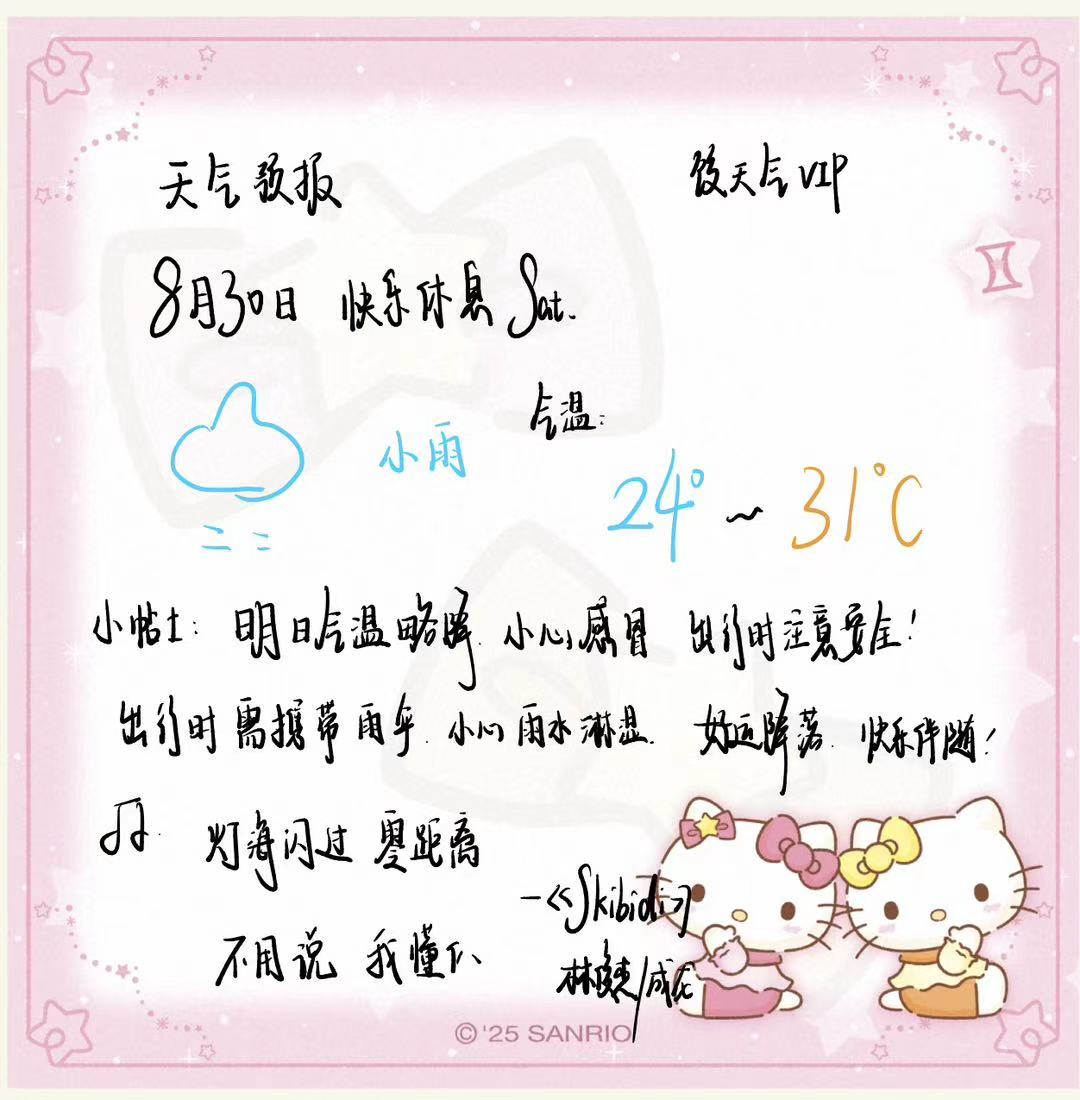 天气预报
天气VIP
8月30日 快乐休息 Sat.
气温:
小雨
24° ~ 31℃
小帖士: 明日气温略降. 小心感冒 出行时注意安全!
出行时需携带雨伞. 小心雨水淋湿. 好运降落. 快乐伴随!
灯海闪过 零距离
—《Skibidi》
不用说 我懂你
林俊杰/
© '25 SANRIO